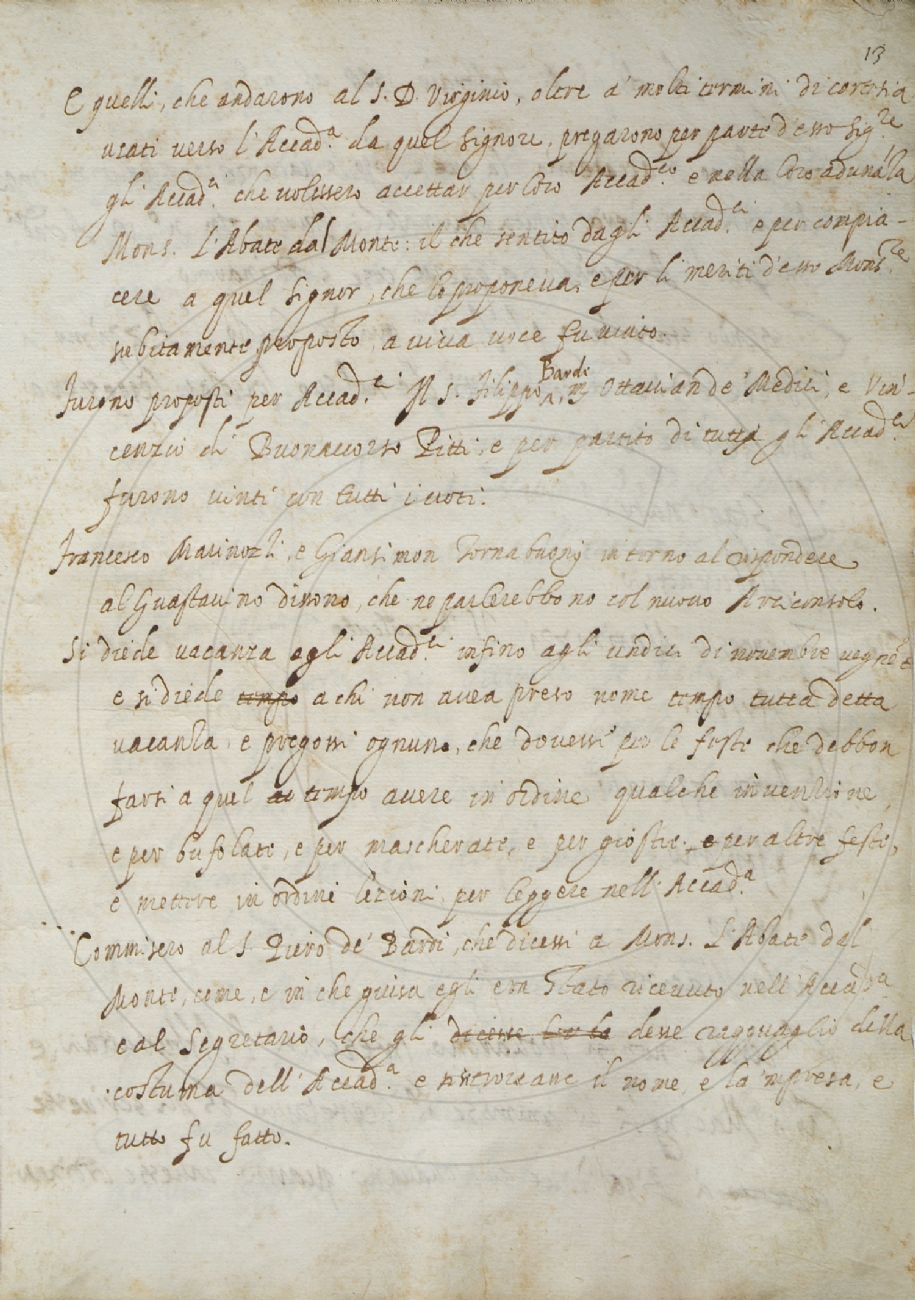 13
E quelli, che andarono al S. D. Virginio, oltre a' molti termini di cortesia
usati verso l'Accad.a da quel Signore, pregarono per parte d'esso Sig.re
gli Accad.i che volessero accettar per loro Accad.co e nella loro adunāza
Mons. l'Abate dal Monte: il che sentito dagli Accad.ci e per compia-
cere a quel Signor, che lo proponeva, e per li meriti d'esso Mons.re
subitamente proposto, a viva voce fu vinto.
Furono proposti per Accad.ci Il S. Filippo Bardi, M. Ottavian de' Medici, e Vin-
cenzio di Buonaccorso Pitti, e per partito di tutti gli Accad.ci
furono vinti con tutti i voti.
Francesco Marinozzi, e Giansimon Tornabuoni intorno al rispondere
al Guastavino dissono, che ne parlerebbono col nuovo Arciconsolo.
Si diede vacanza agli Accad.ci infino agli undici di novembre vegnēte
e si diede tempo a chi non avea preso nome tempo tutta detta
vacanza, e pregossi ognuno, che dovessi per le feste che debbon
farsi a quel tempo avere in ordine qualche invenzione,
e per bufolate, e per mascherate, e per giostre, e per altre feste,
e mettere in ordine lezioni per leggere nell'Accad.a
Commisero al S. Piero de' Bardi, che dicessi a Mons. l'Abate dal
Monte, come, e in che guisa egli era stato ricevuto nell'Accad.a
e al Segretario, che gli dicesse desse ragguaglio della
costuma dell'Accad.a e il nome, e la 'mpresa, e
tutto fu fatto.